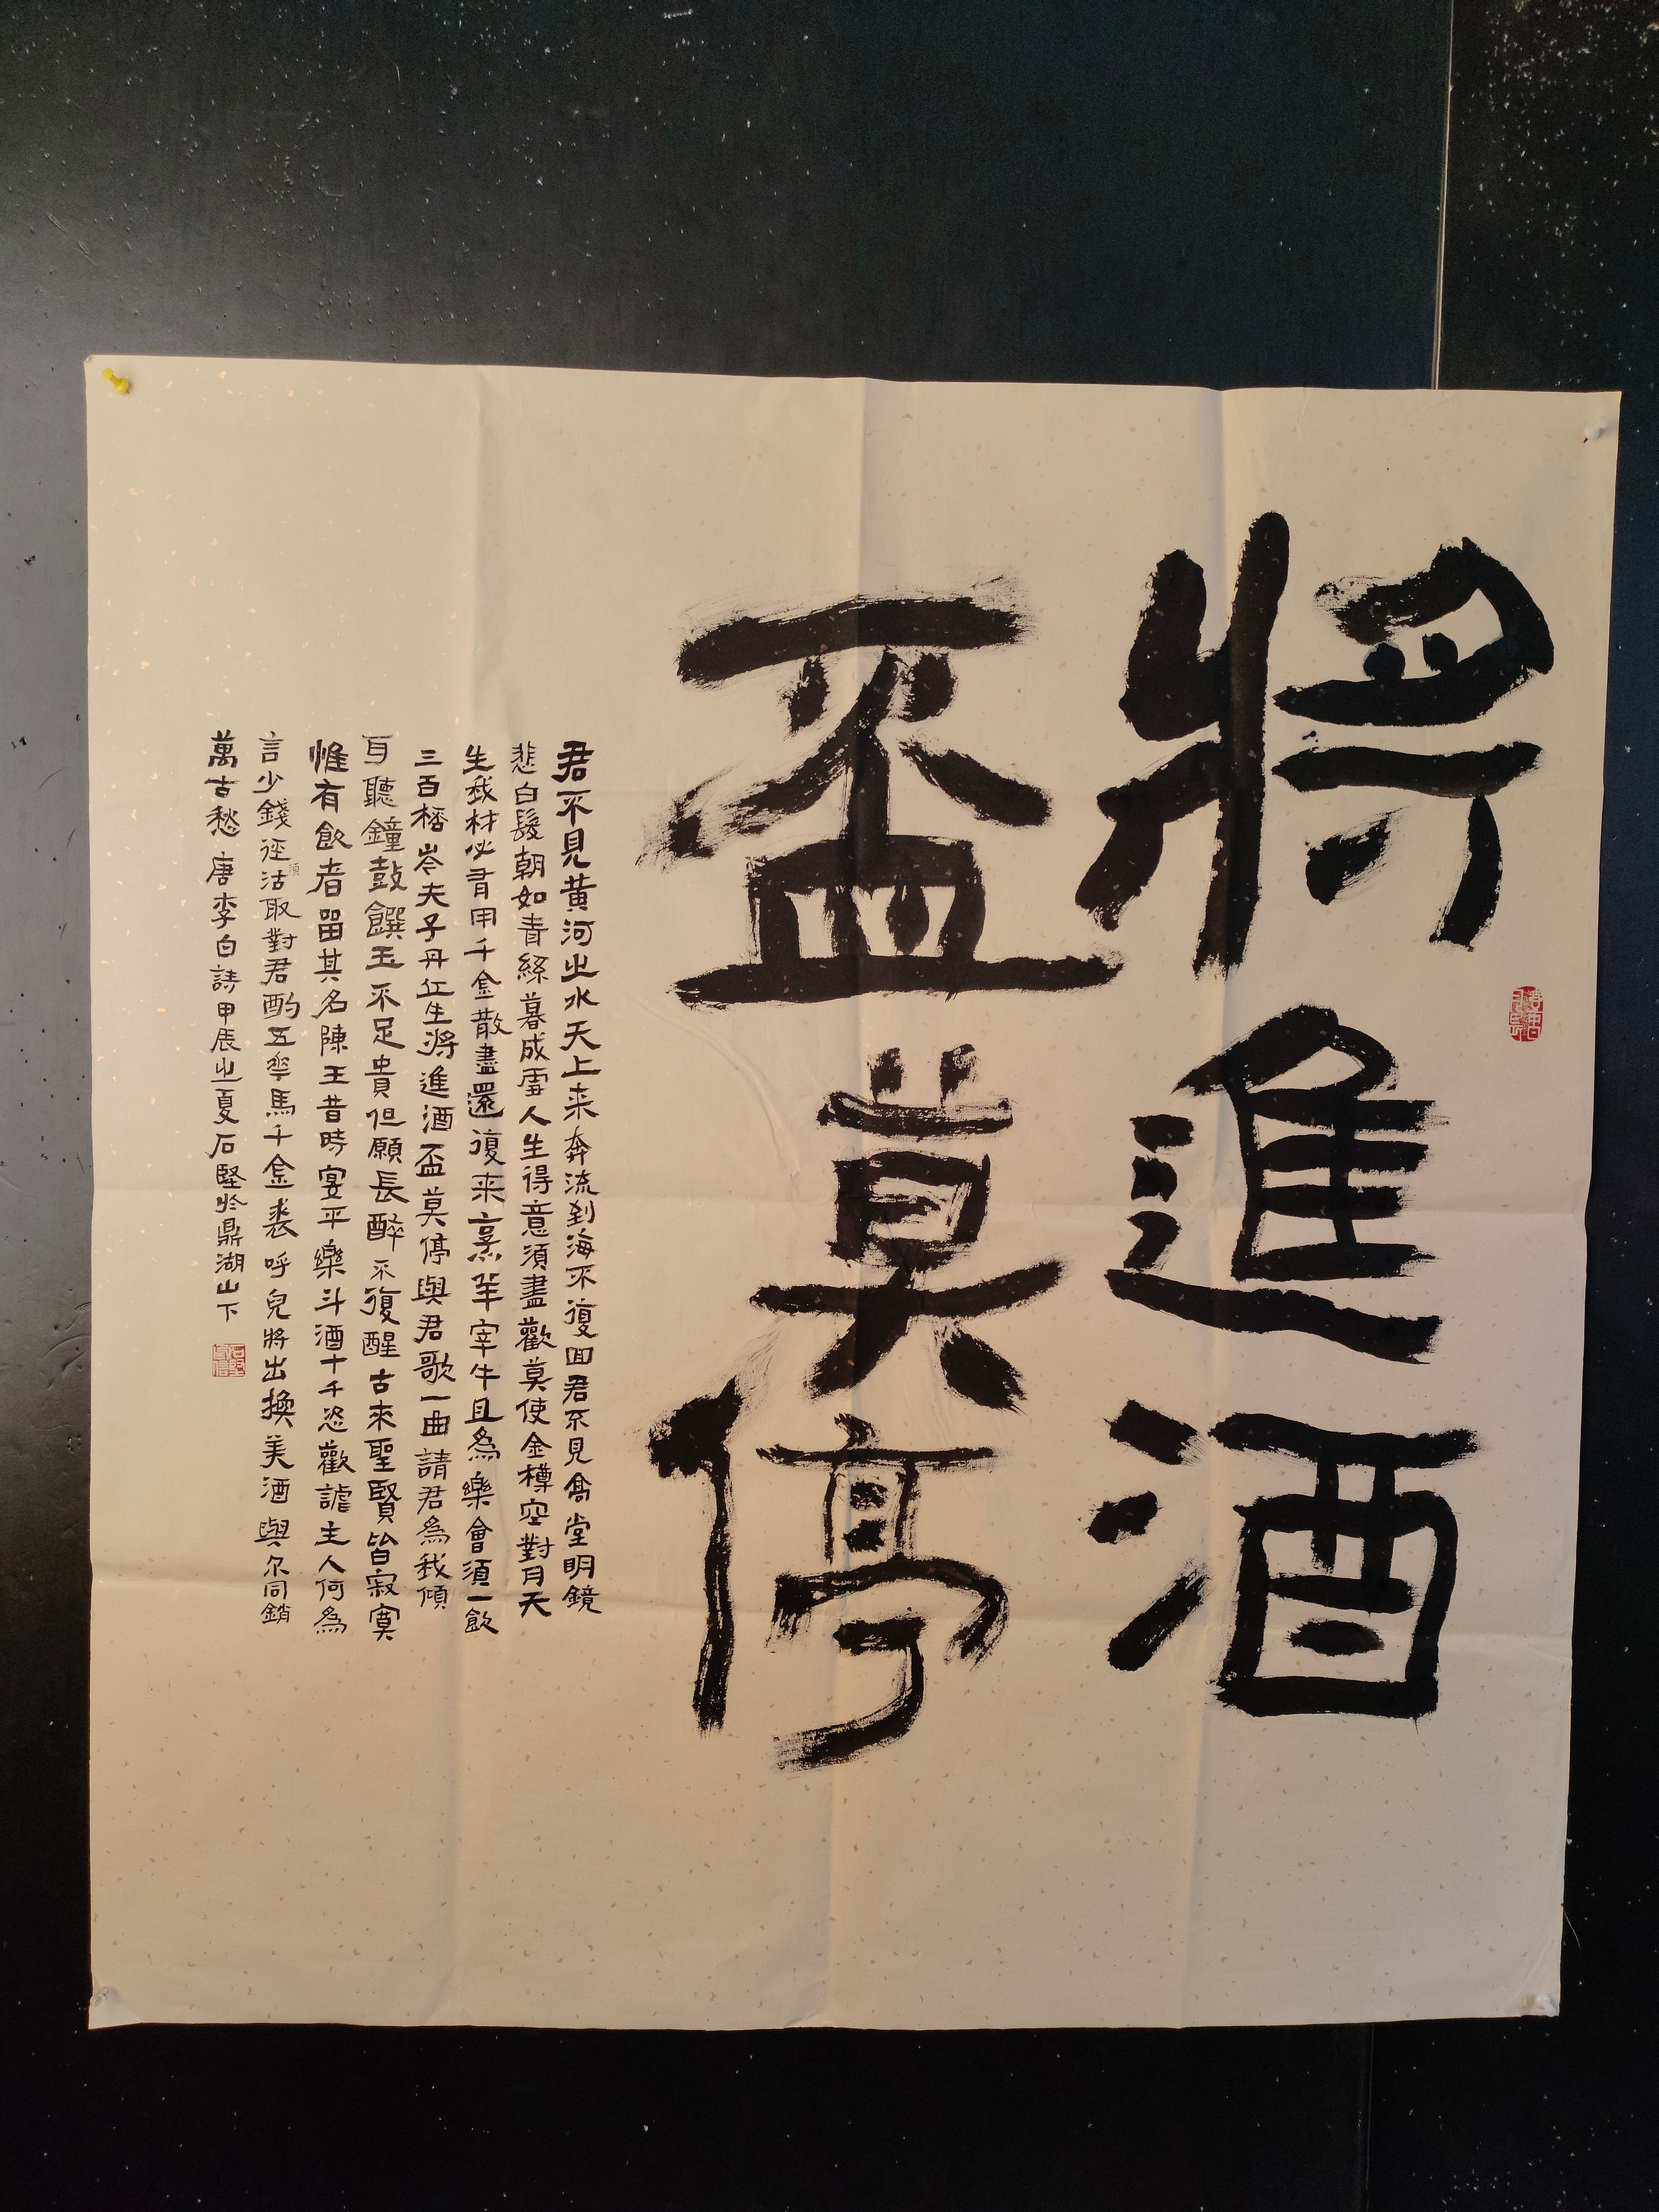 將進酒
盃莫停
君不見黃河之水天上来奔流到海不復回君不見高堂明鏡
悲白髮朝如青絲暮成雪人生得意須盡歡莫使金樽空對月天
生我材必有用千金散盡還復来烹羊宰牛且為樂會須一飲
三百桮岑夫子丹丘生將進酒盃莫停與君歌一曲請君為我傾
耳聽鐘鼓饌玉不足貴但願長醉不復醒古來聖賢皆寂寞
惟有飲者留其名陳王昔時宴平樂斗酒十千恣歡謔主人何為
言少錢徑須沽取對君酌五花馬千金裘呼兒將出換美酒與尔同銷
萬古愁唐李白詩甲辰之夏石堅於鼎湖山下